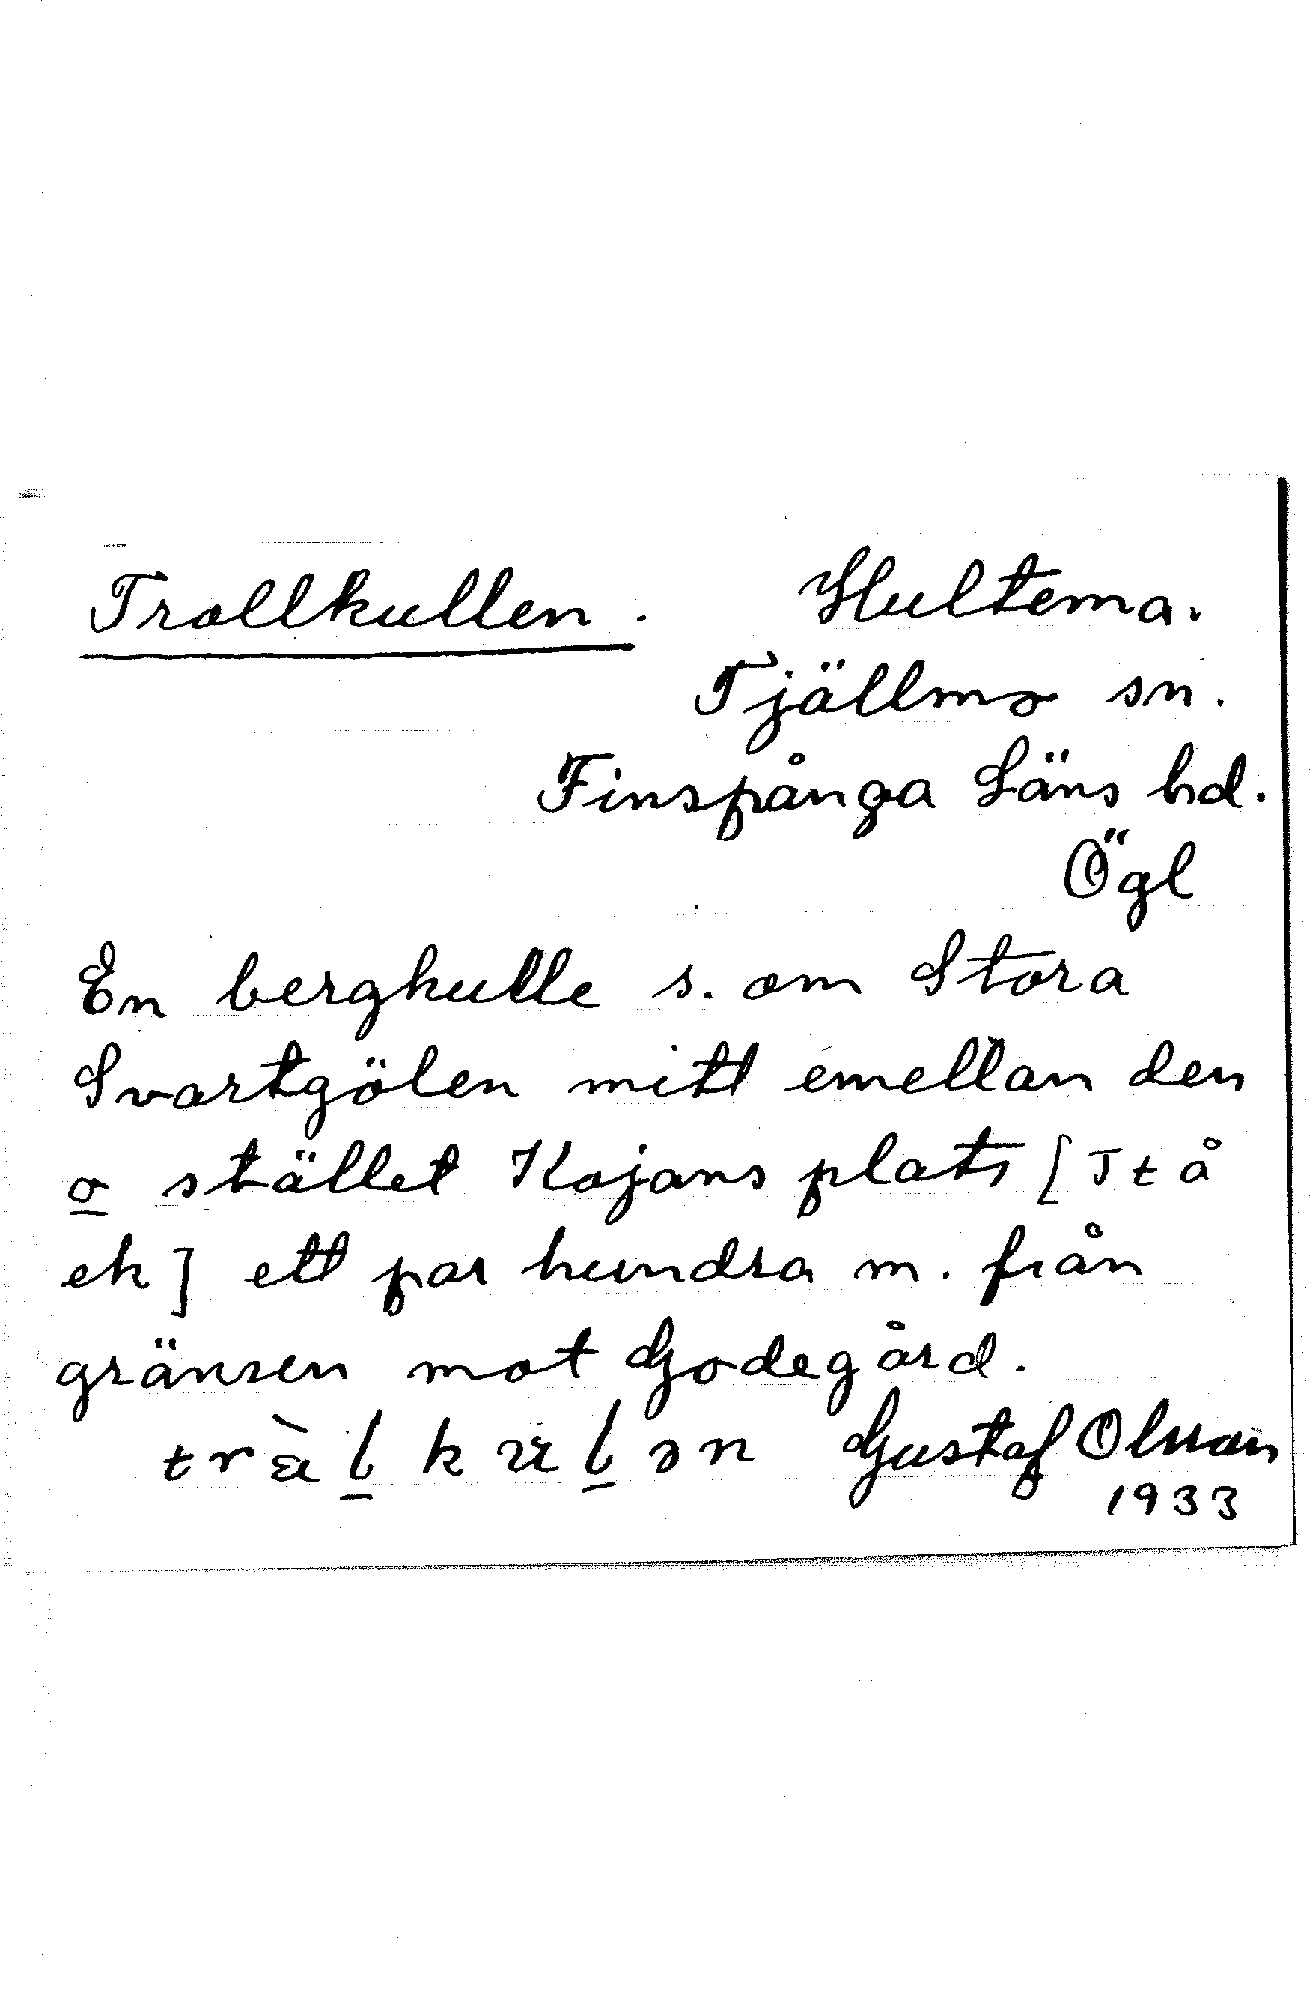 Trollkullen. Hultema.
Tjällmo sn.
Finspånga Läns hd.
Ögl
En bergkulle s. om Stora
Svartgölen mitt emellan den
o stället Kojans plats [T t å
ek] ett par hundra m. från
gränsen mot Godegård.
Gustaf Olsson
1933